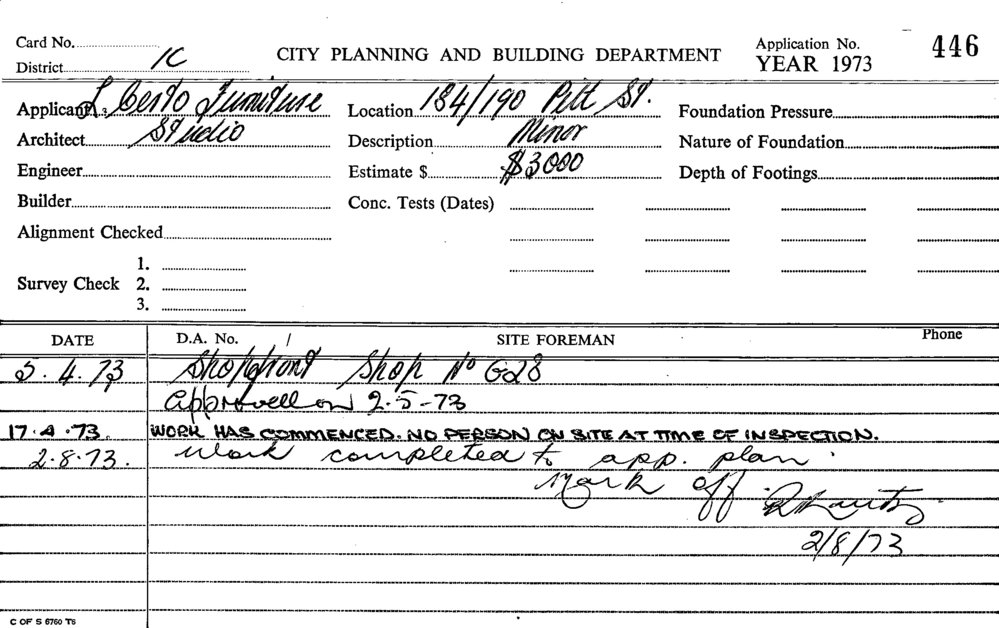 Card No.
District 1C
CITY PLANNING AND BUILDING DEPARTMENT
Application No. 446
YEAR 1973
Applicant L. Certo Furniture
Studio
Location 184/190 Pitt St.
Foundation Pressure
Architect
Description Minor
Nature of Foundation
Engineer
Estimate $ $3000
Depth of Footings
Builder
Conc. Tests (Dates)
Alignment Checked
Survey Check 1.
2.
3.
DATE D.A. No. / SITE FOREMAN Phone
5.4.73 Shopfront Shop No G28
Approved on 2-5-73
17.4.73. WORK HAS COMMENCED. NO PERSON ON SITE AT TIME OF INSPECTION.
2.8.73. Work completed to app. plan.
Mark off
2/8/73
C OF S 6760 T6